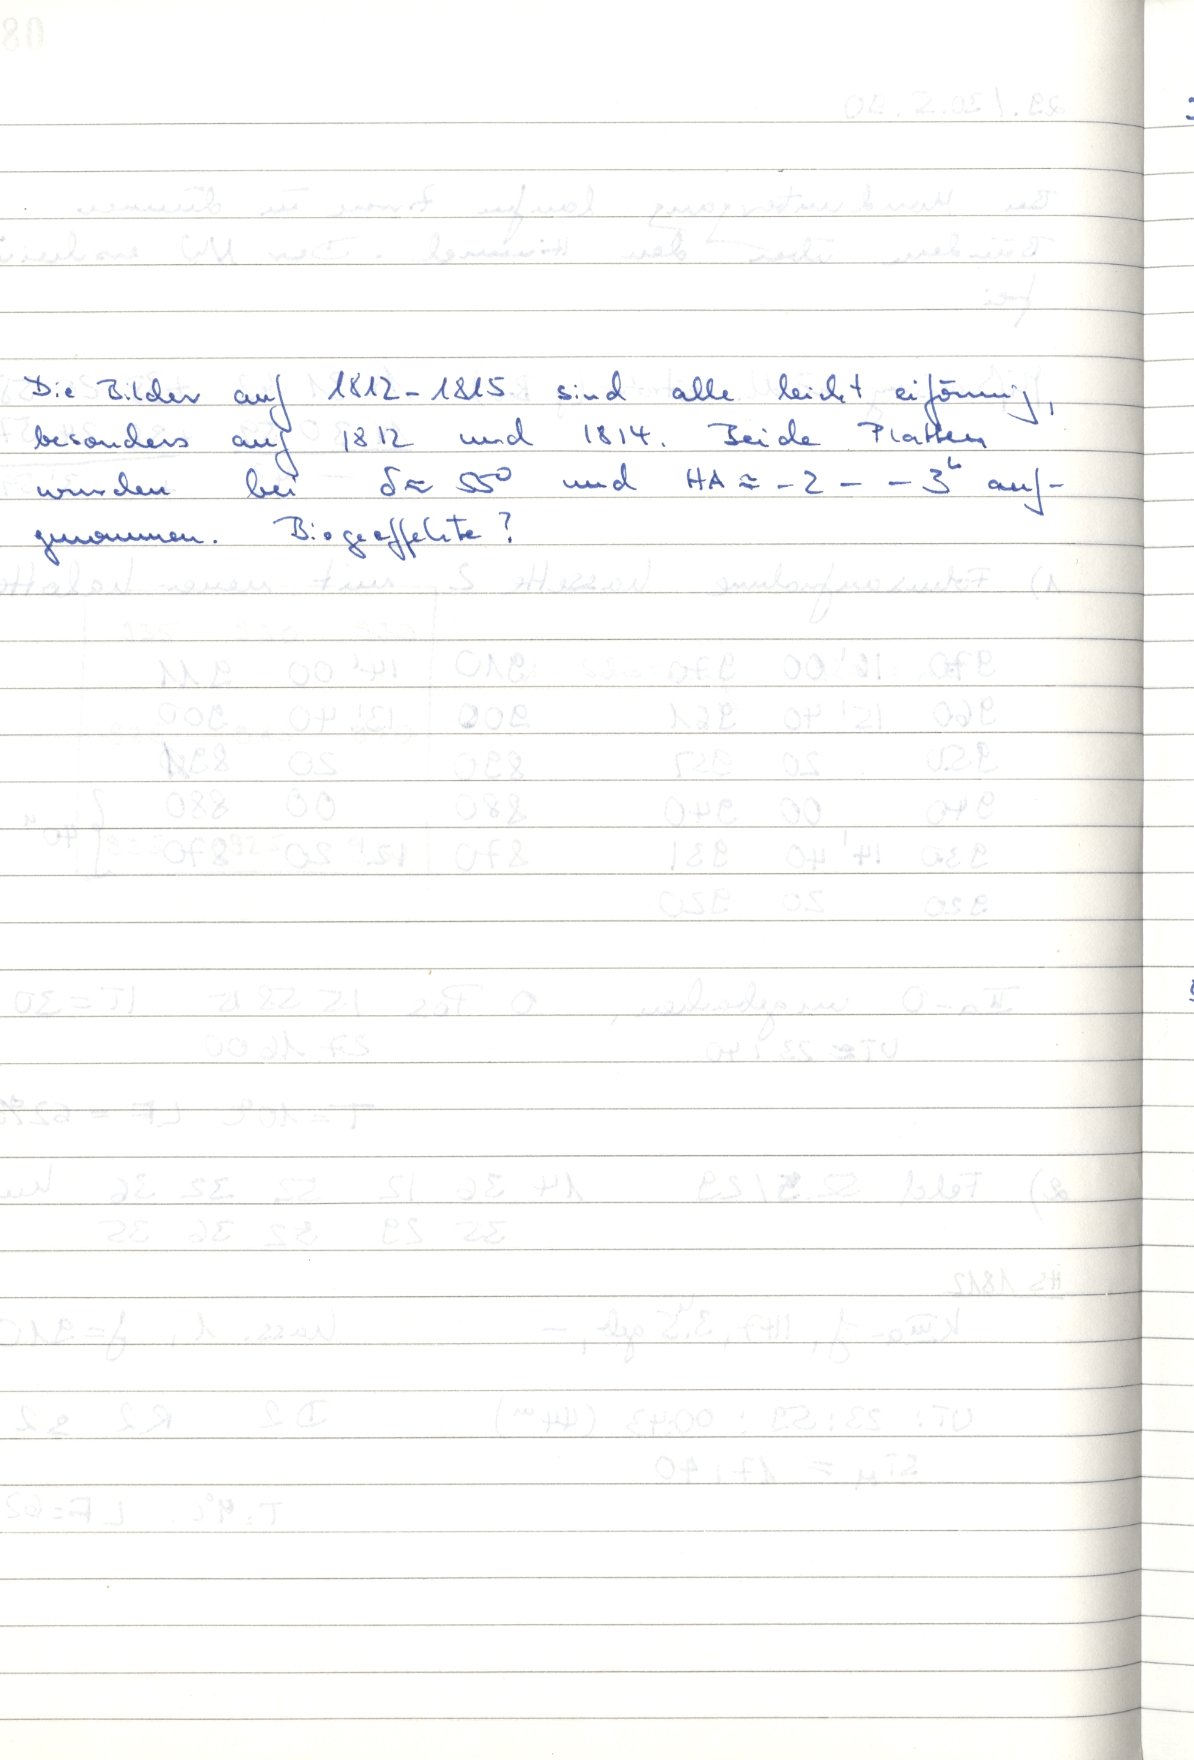 Die Bilder auf 1812-1815 sind alle leicht eiförmig,
besonders auf 1812 und 1814. Beide Platten
wurden bei δ≈ 55° und HA ≈ -2 - -3ʰ auf-
genommen. Biegeeffekte?